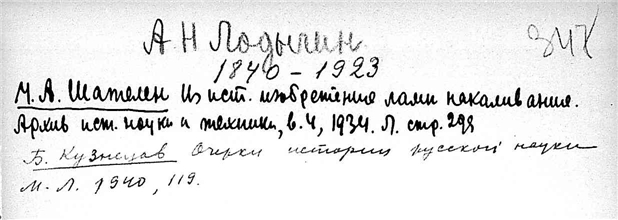 А Н Лодыгин
347
1846 - 1923
М. А. Шателен Из ист. изобретения ламп накаливания.
Архив ист. науки и техники, в. 4, 1934. Л. стр. 298
Б. Кузнецов Очерки истории русской науки
М - Л. 1940, 119.